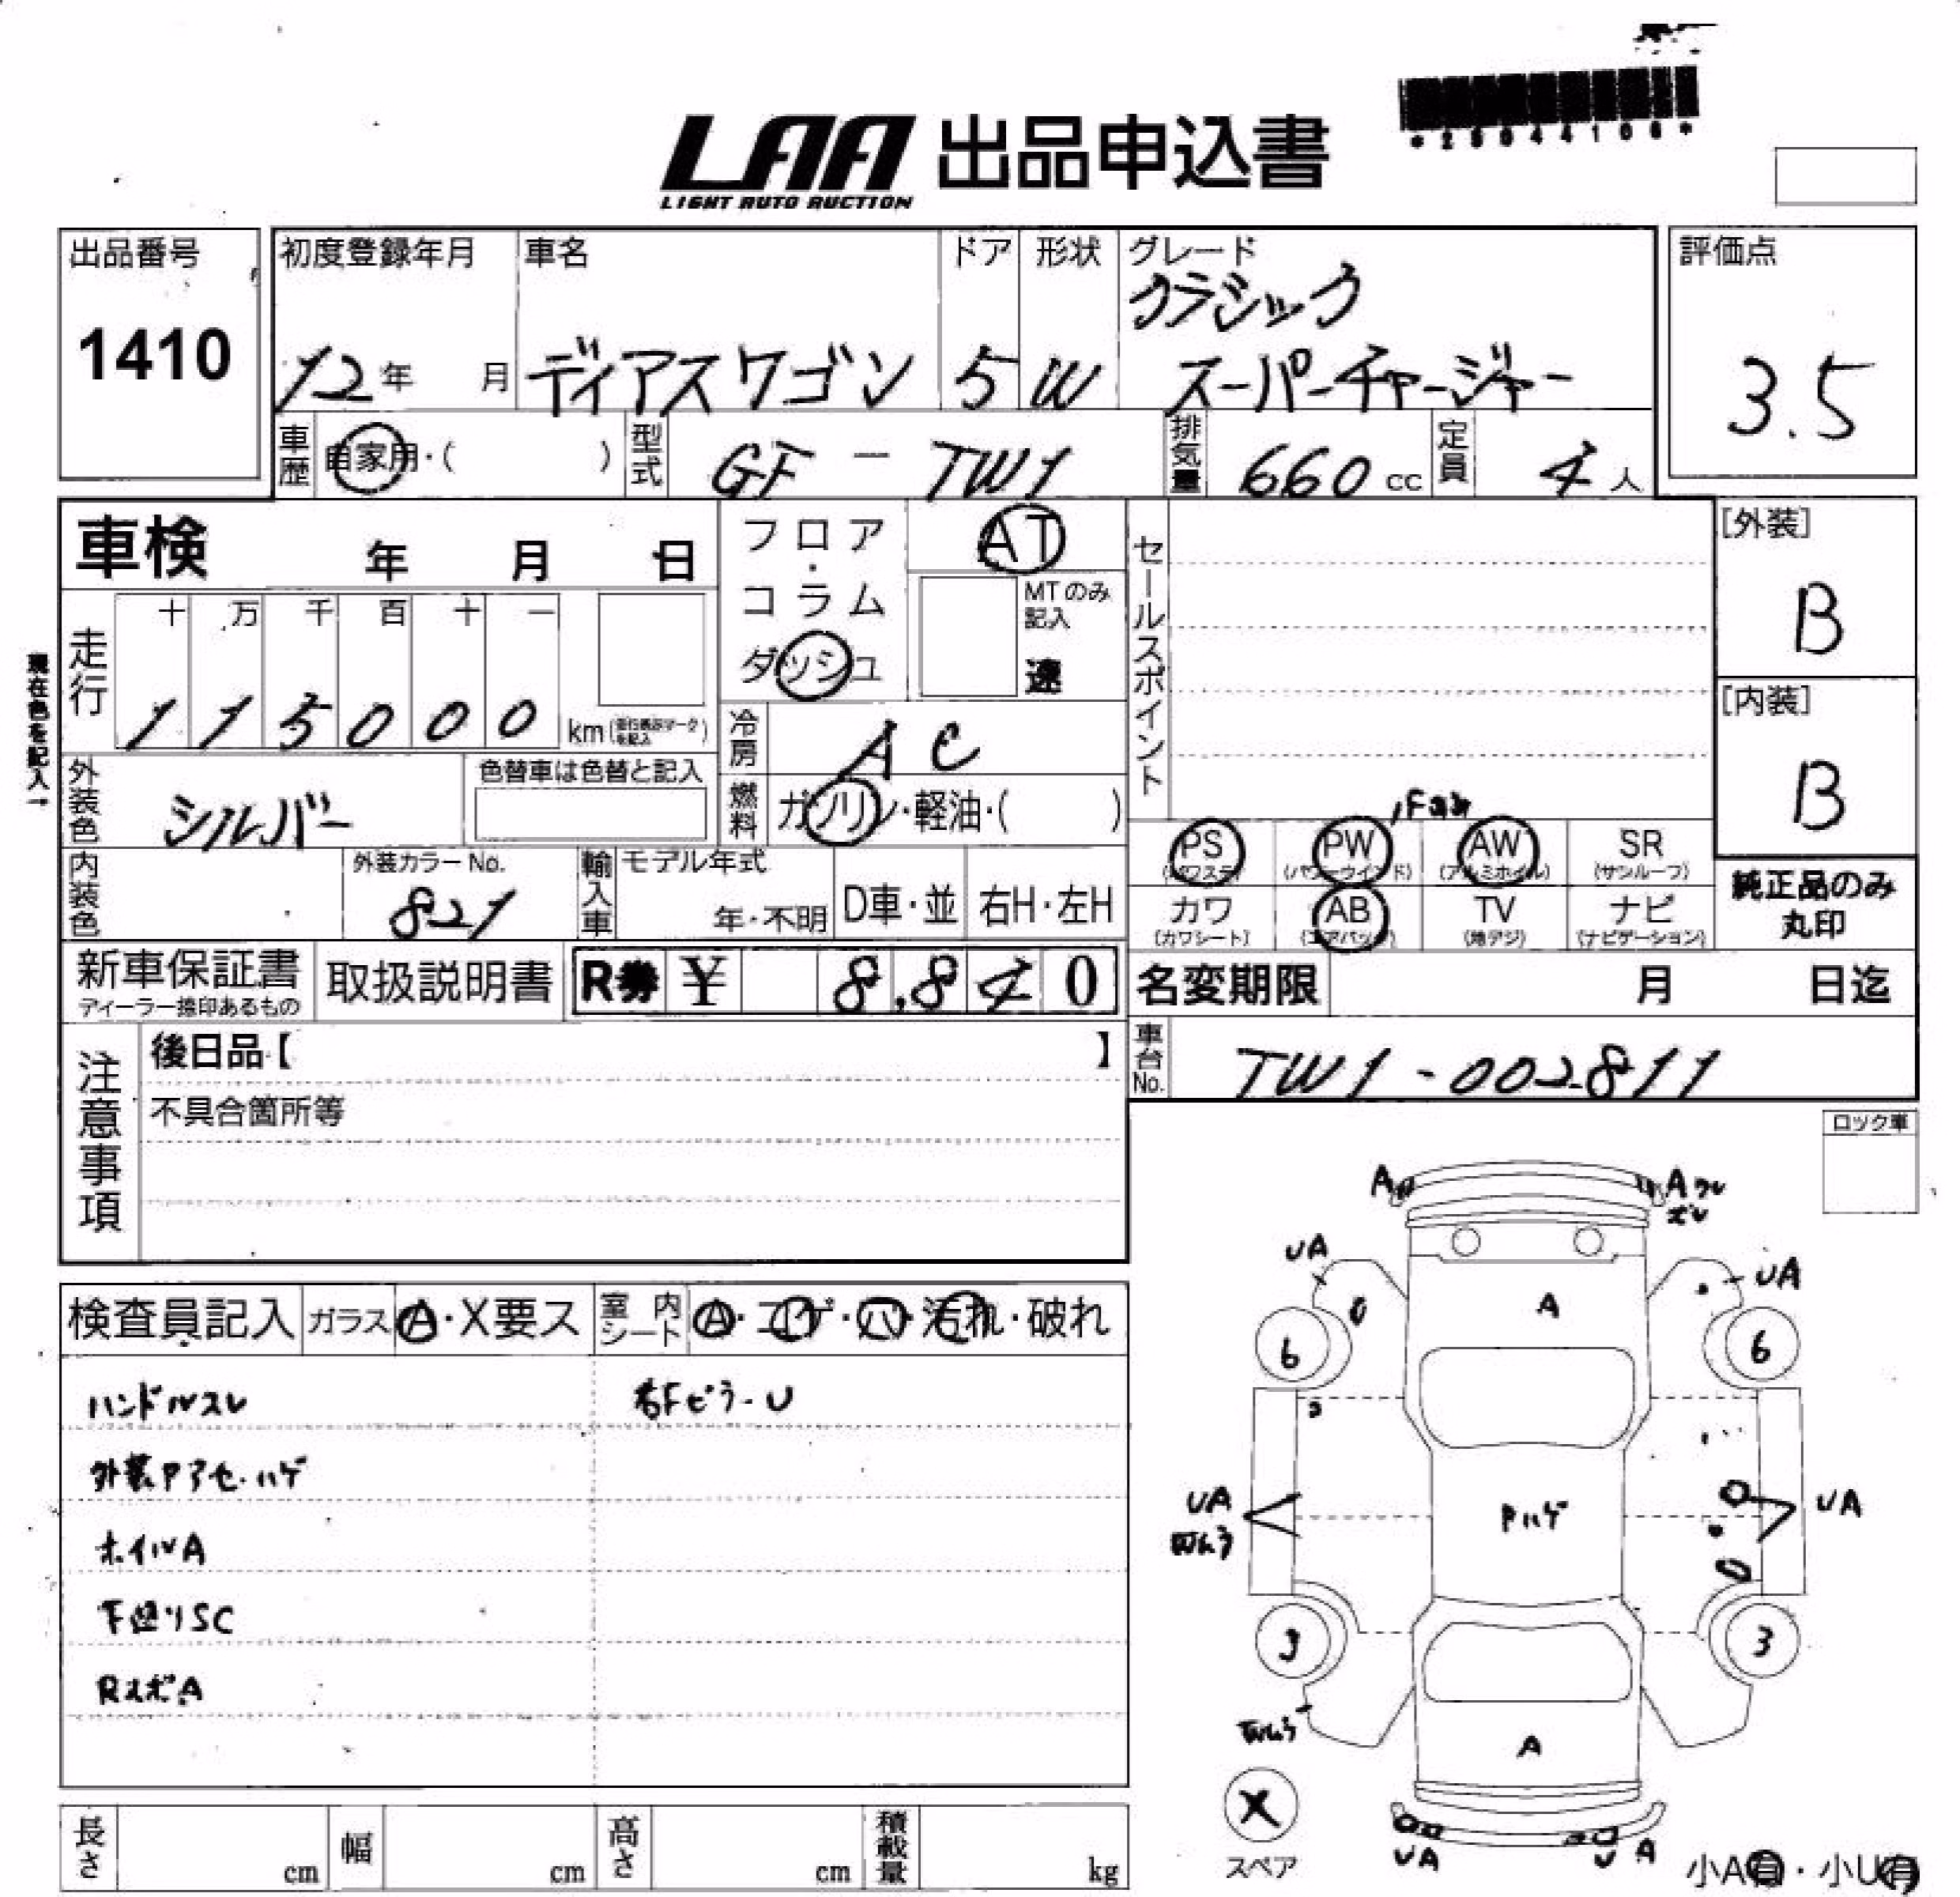 LAA 出品申込書
LIGHT AUTO AUCTION
出品番号
1410
初度登録年月
12年 月
車名
ディアスワゴン
ドア
5
形状
W
グレード
クラシック
スーパーチャージャー
評価点
3.5
車歴 自家用・( )
型式 GF - TW1
排気量 660 cc
定員 4 人
車検 年 月 日
フロア・コラム
ダッシュ
AT
MTのみ記入
速
セールスポイント
[外装]
B
[内装]
B
現在色を記入→
走行
十 万 千 百 十 一
1 1 5 0 0 0 km
冷房 AC
外装色 シルバー
色替車は色替と記入
燃料 ガソリン・軽油・( )
PS (パワステ) PW (パワーウインド) AW (アルミホイル) SR (サンルーフ)
カワ (カワシート) AB (エアバック) TV (地デジ) ナビ (ナビゲーション)
純正品のみ
丸印
内装色
外装カラーNo.
821
輸入車
モデル年式
年・不明
D車・並
右H・左H
新車保証書
ディーラー捺印あるもの
取扱説明書
R券 ¥ 8,840
名変期限 月 日迄
車台No. TW1-002811
注意事項
後日品【 】
不具合箇所等
ロック車
検査員記入 ガラス A・X要ス 室内シート A・コゲ・穴・汚れ・破れ
ハンドルスレ
右FピラーU
外装Pアセ・ハゲ
ホイルA
下廻りSC
RスポA
A
A
UA
UA
A
6
6
UA
Pハゲ
UA
3
3
A
X
スペア
UA
U A
小A有・小U有
長さ cm
幅 cm
高さ cm
積載量 kg